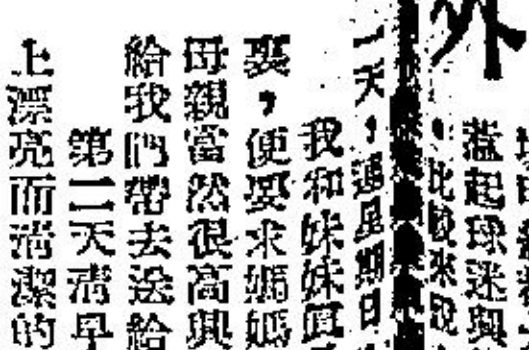 外
惹起球迷興
，比較來說
一天，適星期日
我和妹妹真
裏，便要求媽媽
母親當然很高興
給我們帶去送給
第二天清早
上漂亮而清潔的